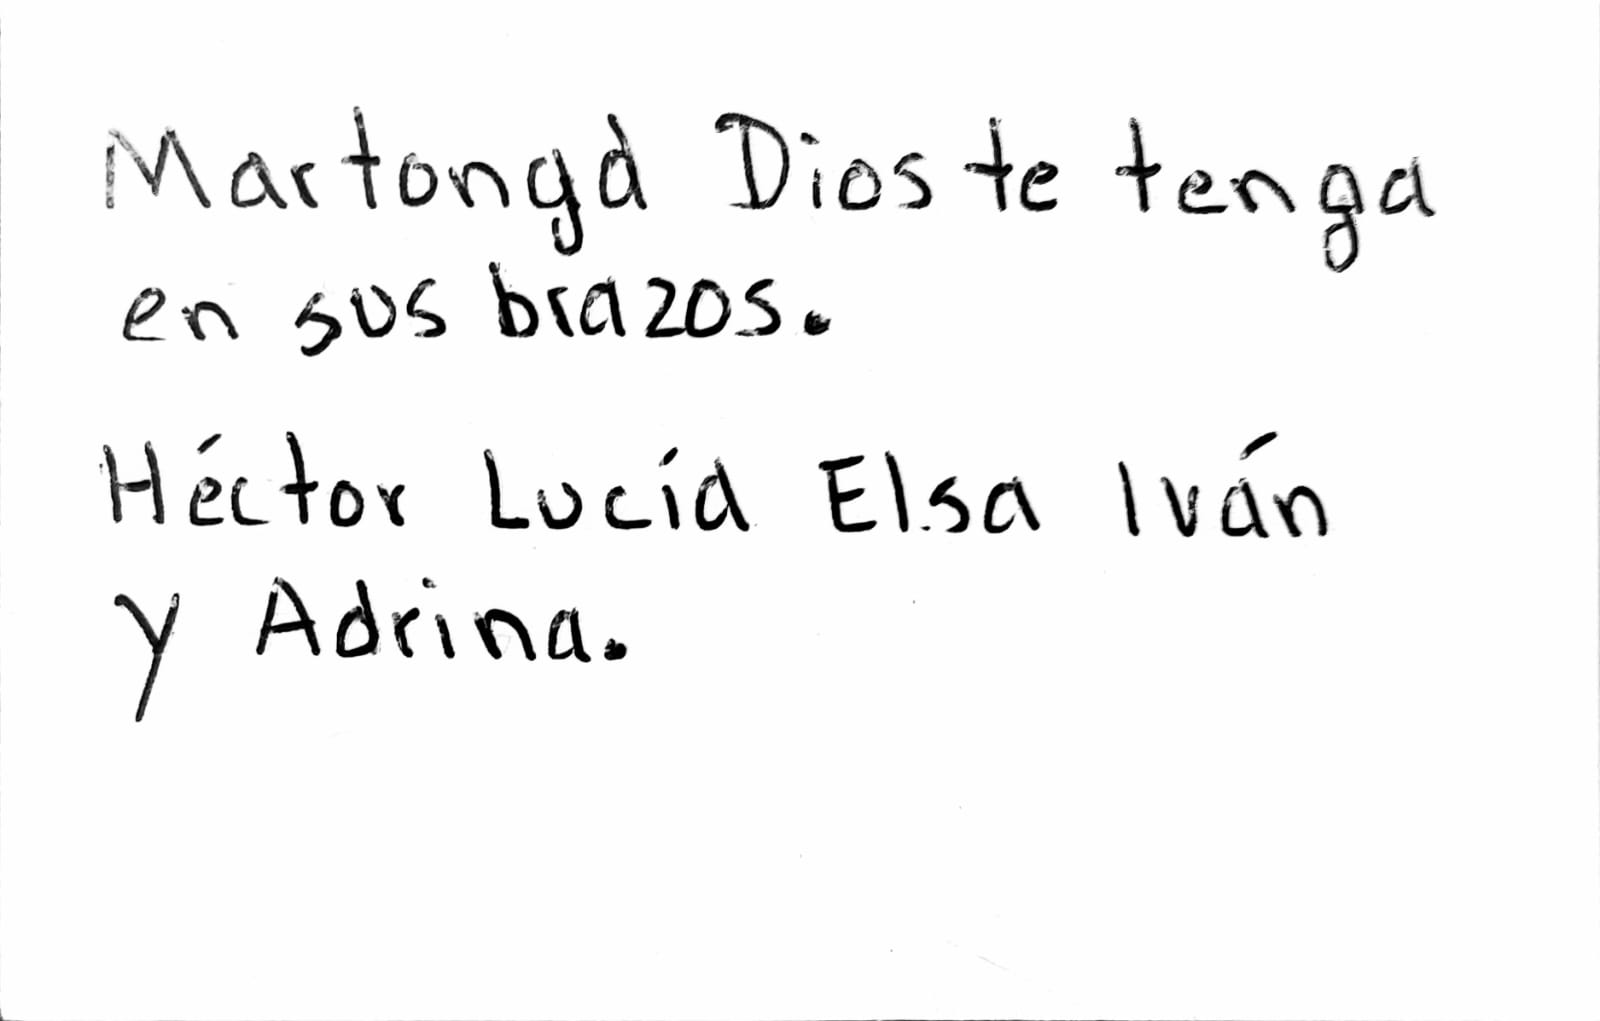 Martonga Dios te tenga
en sus brazos.
Héctor Lucía Elsa Iván
y Adrina.